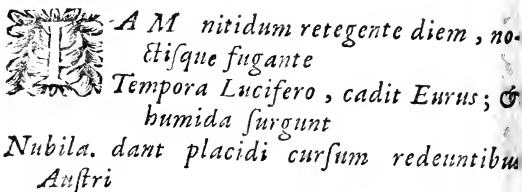 IAM nitidum retegente diem, no-
ctiſque fugante
Tempora Lucifero, cadit Eurus; &
humida ſurgunt
Nubila. dant placidi curſum redeuntibus
Auſtri